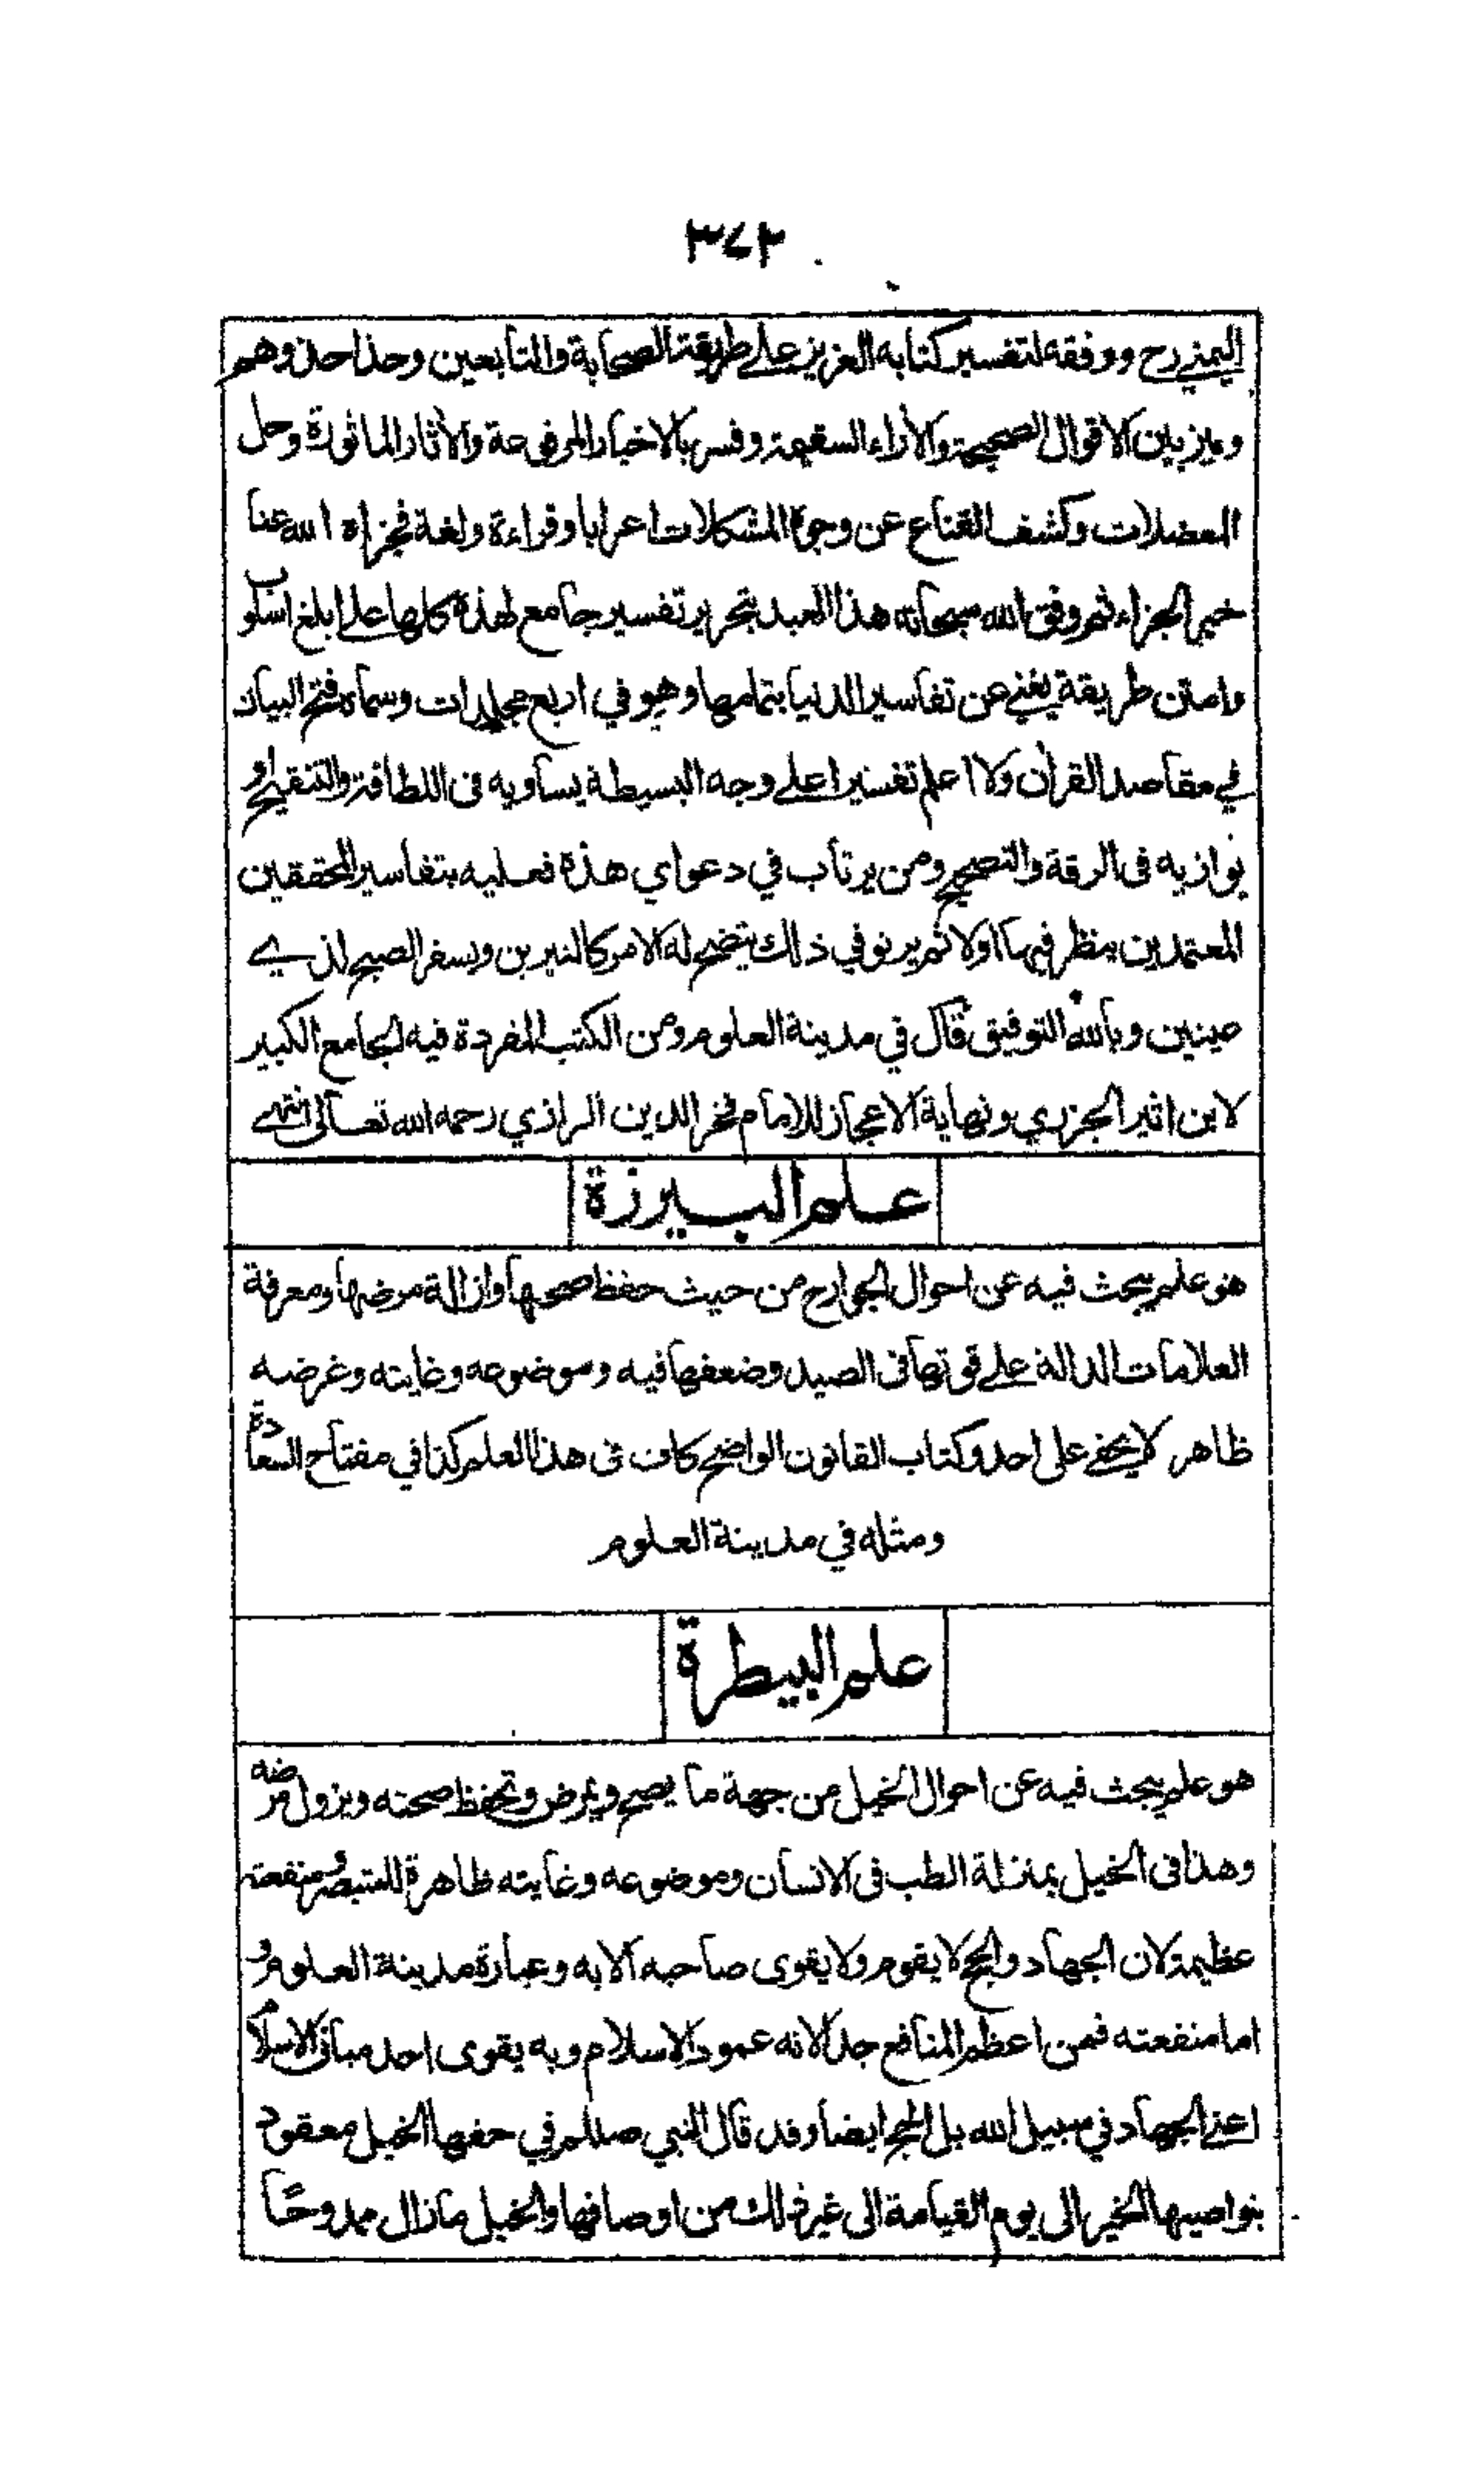 ٣٤٢
اليمني رح ووفقه لتفسير كتابه العزيز على طريقة الصحابة والتابعين وحذا حذوهم
وميز بين الاقوال الصحيحة والأراء السقيمة وفسر بالاخبار المرفوعة والآثار الماثورة وحل
المعضلات وكشف القناع عن وجوه المشكلات اعرابا وقراءة ولغة فجزاه الله عنا
خير الجزاء ثم وفق الله سبحانه هذا العبد بتحرير تفسير جامع لهذه كلها على ابلغ اسلوب
وامتن طريقة يغني عن تفاسير الدنيا بتمامها وهو في اربع مجلدات وسماه فتح البيان
في مقاصد القرأن ولا اعلم تفسيرا على وجه البسيطة يساويه في اللطافة والتنقيح او
يوازيه في الرقة والتصحيح ومن يرتاب في دعواي هذه فعليه بتفاسير المحققين
المعتمدين ينظر فيها اولا ثم يرنو في ذلك يتضح له الامر كالنيرين ويسفر الصبح لذي
عينين وبالله التوفيق قال في مدينة العلوم ومن الكتب المفردة فيه الجامع الكبير
لابن اثير الجزري ونهاية الاعجاز للامام فخر الدين الرازي رحمه الله تعالى انتهى
علم البيزرة
هو علم يبحث فيه عن احوال الجوارح من حيث حفظ صحتها وازالة مرضها ومعرفة
العلامات الدالة على قوتها في الصيد وضعفها فيه وموضوعه وغايته وغرضه
ظاهر لا يخفى على احد وكتاب القانون الواضح كاف في هذا العلم كذا في مفتاح السعادة
ومثله في مدينة العلوم
علم البيطرة
هو علم يبحث فيه عن احوال الخيل من جهة ما يصح ويمرض وتحفظ صحته ويزول مرضه
وهذا في الخيل بمنزلة الطب في الانسان وموضوعه وغايته ظاهرة للمتبصر ومنفعته
عظيمة لان الجهاد والحج لا يقوم ولا يقوى صاحبه الا به وعبارة مدينة العلوم و
اما منفعته فمن اعظم المنافع جدا لانه عمود الاسلام وبه يقوى احد مباني الاسلام
اعني الجهاد في سبيل الله بل الحج ايضا وقد قال النبي صللم في حقها الخيل معقود
بنواصيها الخير الى يوم القيامة الى غير ذلك من اوصافها والخيل مازال ممدوحًا